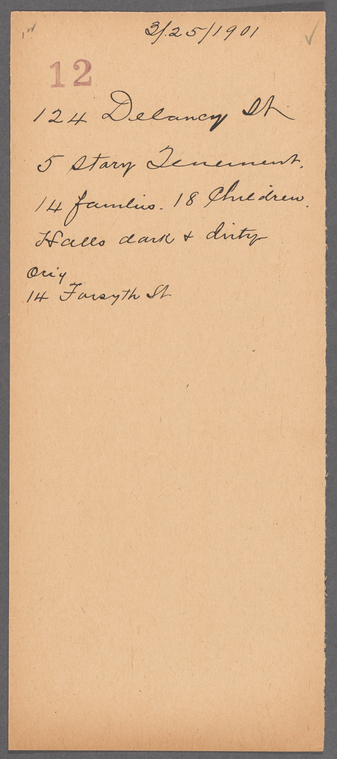 3/25/1901
12
124 Delancy St.
5 story Tenement.
14 families. 18 Children.
Halls dark & dirty
Orig
14 Forsyth St